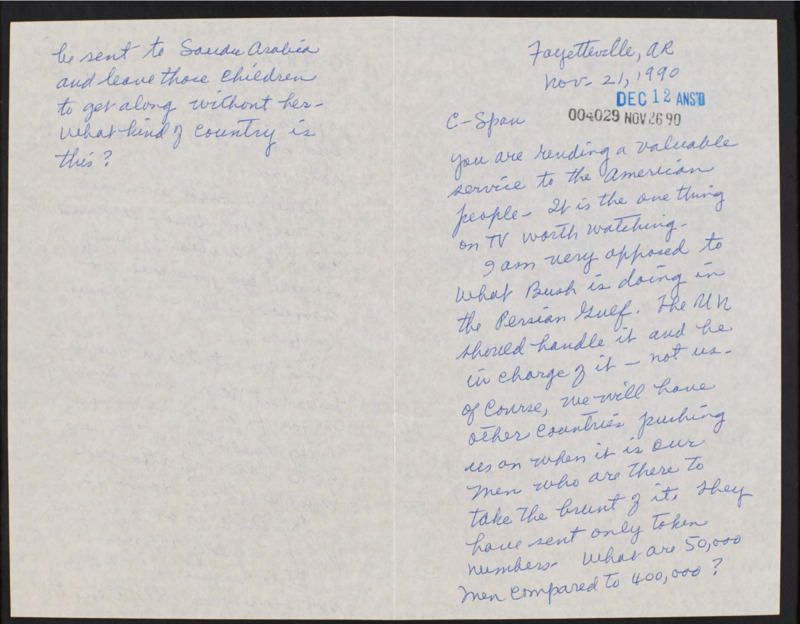 be sent to Saudi Arabia
and leave those children
to get along without her-
What kind of country is
this?
Fayetteville, AR
Nov. 21, 1990
DEC 12 ANS'D
004029 NOV 26 90
C-Span
You are rending a valuable
service to the American
people- It is the one thing
on TV worth watching-
I am very opposed to
What Bush is doing in
the Persian Gulf. The UN
should handle it and be
in charge of it - not us-
Of course, we will have
other countries pushing
us on when it is our
men who are there to
take the brunt of it. They
have sent only token
numbers- What are 50,000
men compared to 400,000?